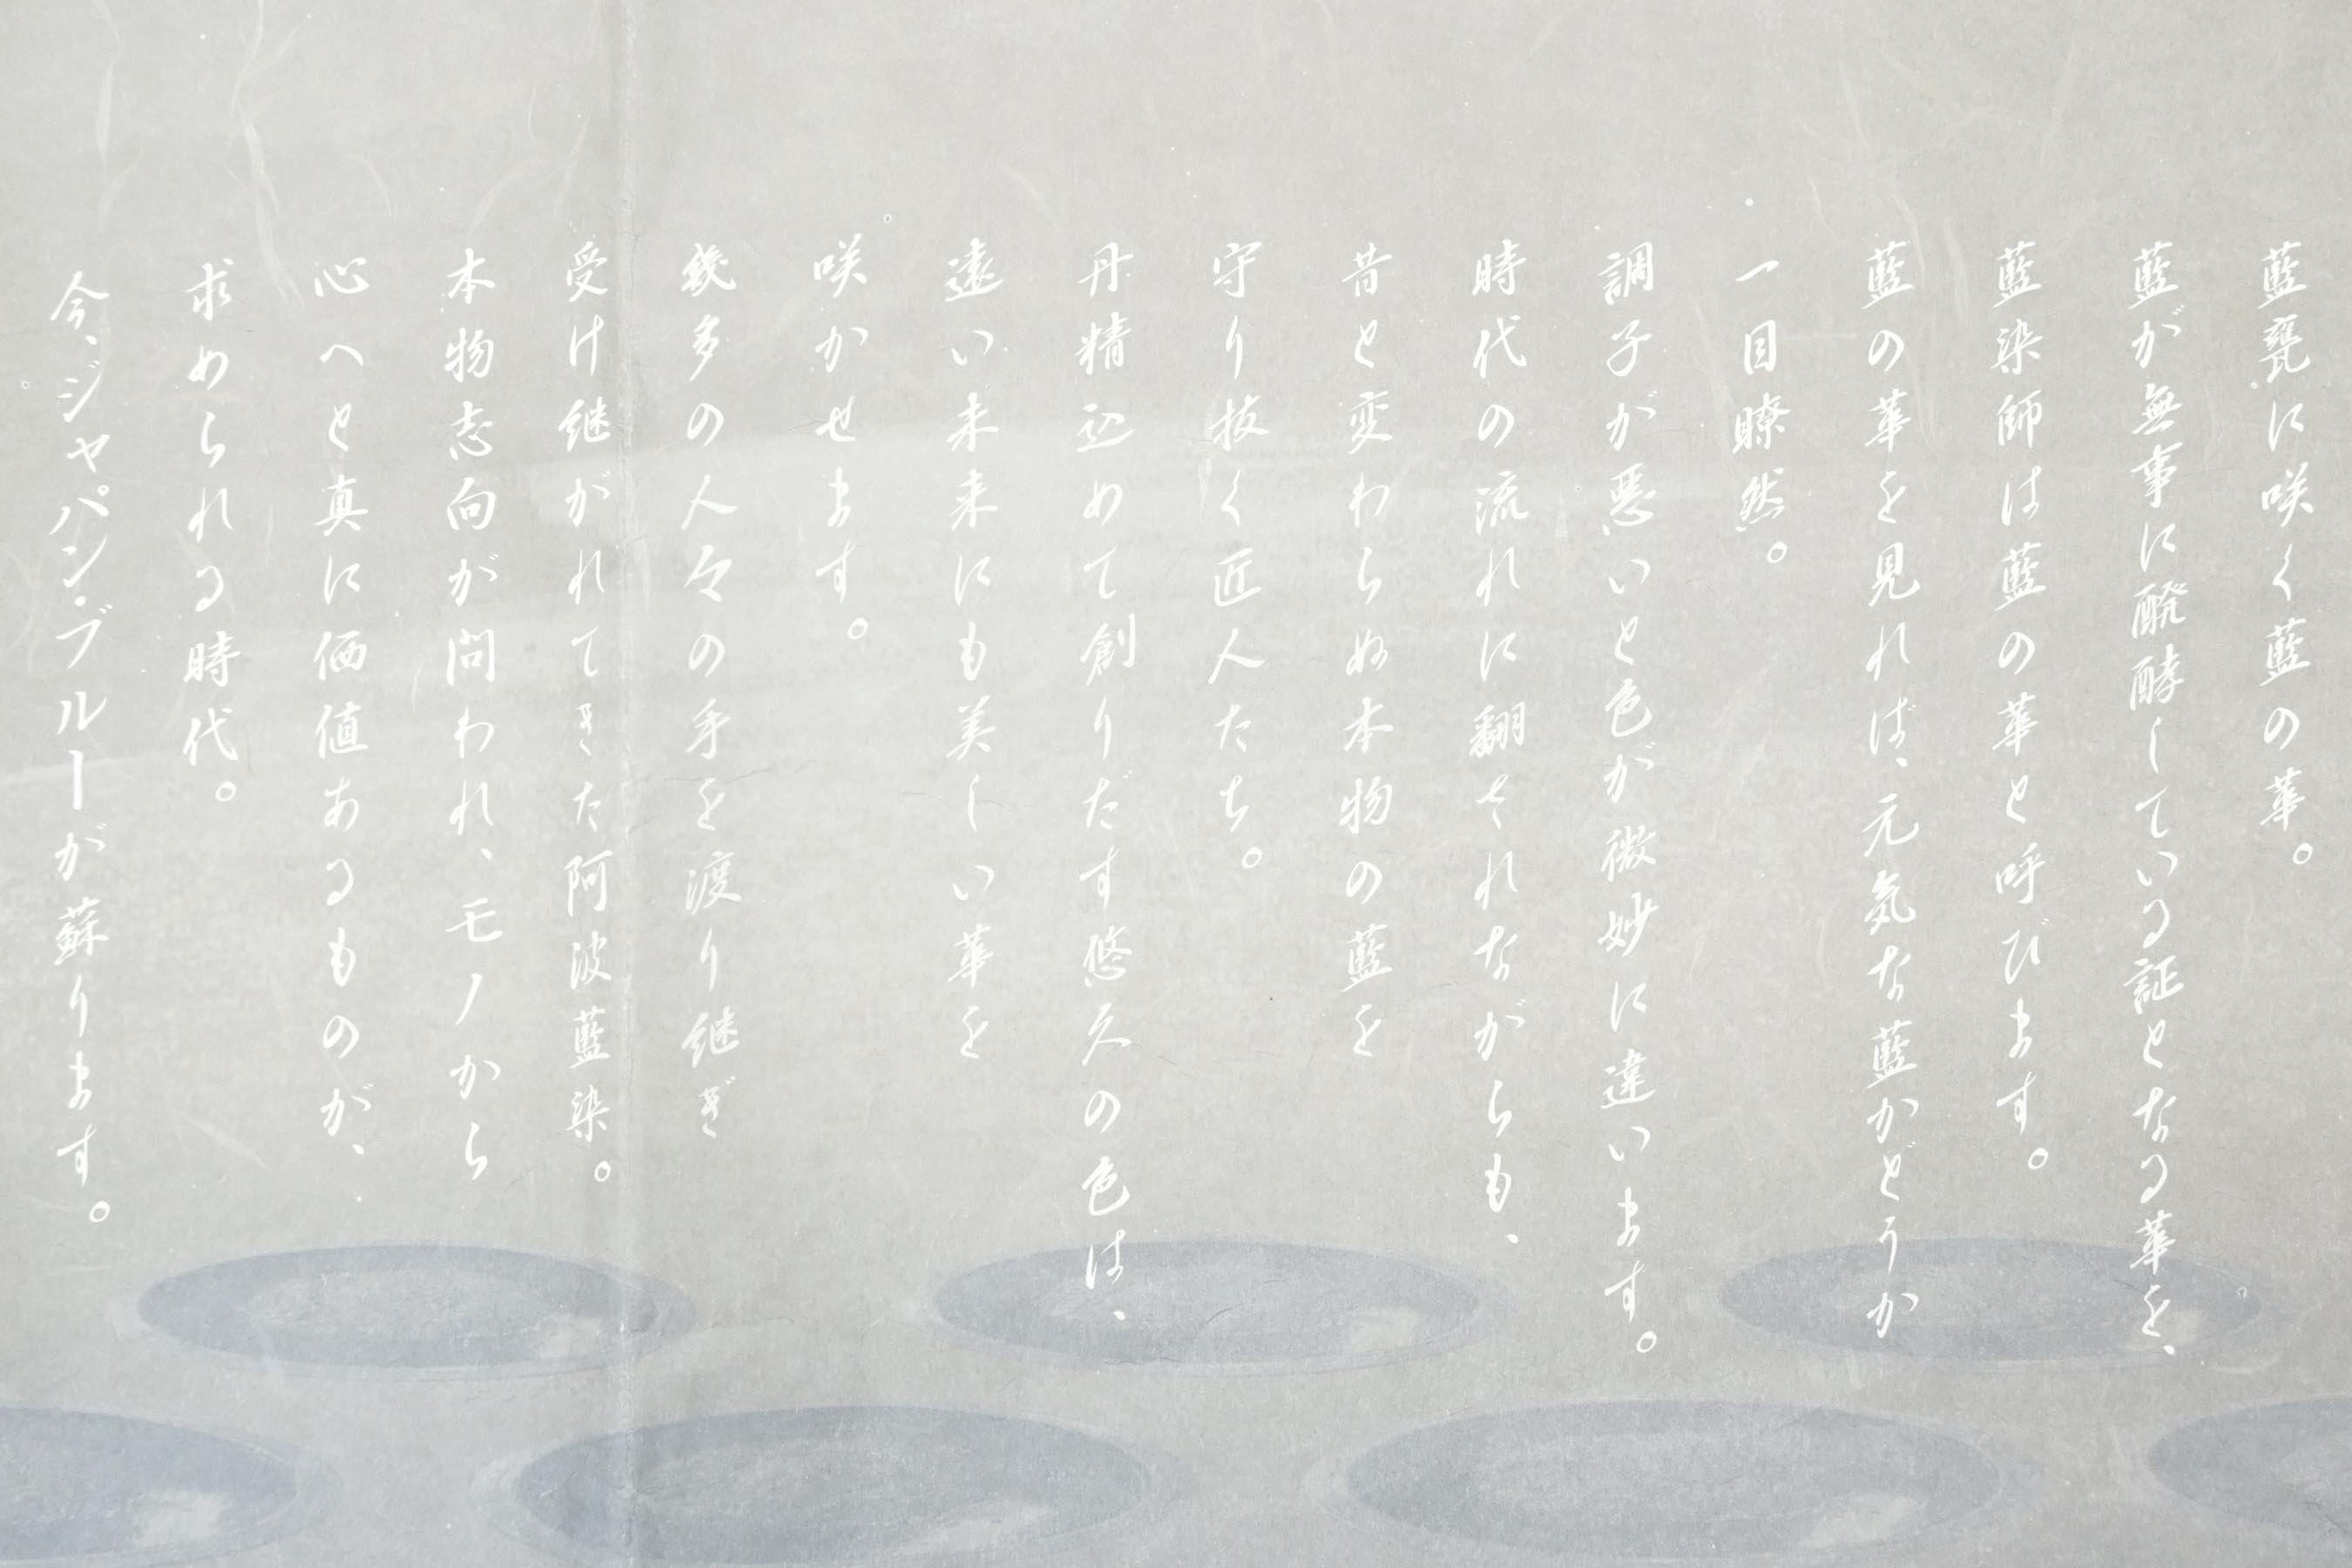 藍甕に咲く藍の華。
藍が無事に醗酵している証となる華を、
藍染師は藍の華と呼びます。
藍の華を見れば、元気な藍かどうか
一目瞭然。
調子が悪いと色が微妙に違います。
時代の流れに翻されながらも、
昔と変わらぬ本物の藍を
守り抜く匠人たち。
丹精込めて創りだす悠久の色は、
遠い未来にも美しい華を
咲かせます。
幾多の人々の手を渡り継ぎ
受け継がれてきた阿波藍染。
本物志向が問われ、モノから
心へと真に価値あるものが、
求められる時代。
今、ジャパン・ブルーが蘇ります。